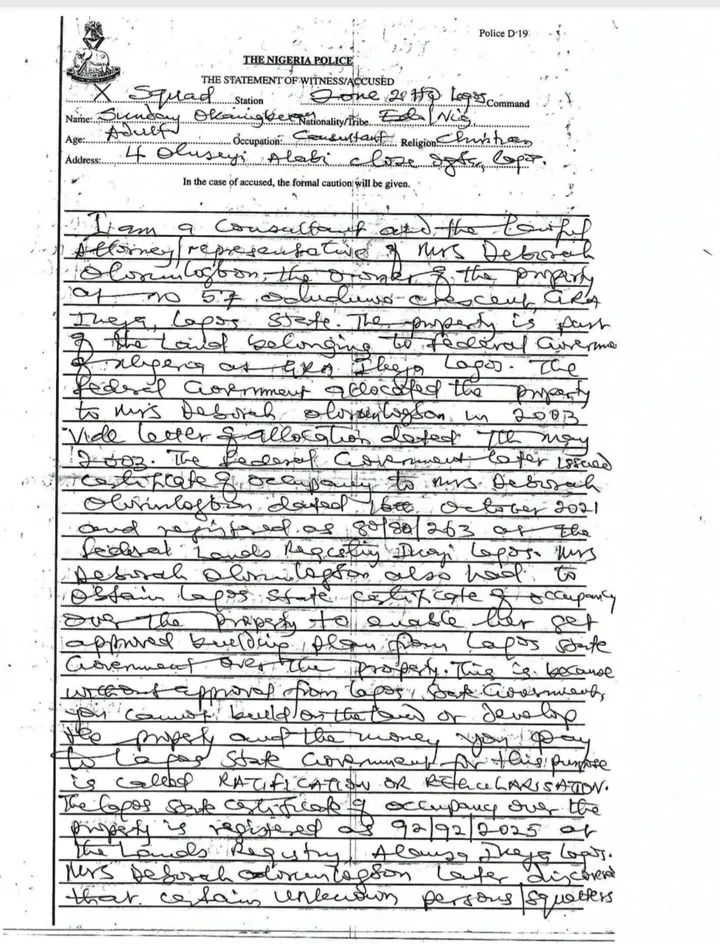 Police D·19
THE NIGERIA POLICE
THE STATEMENT OF WITNESS/ACCUSED
X Squad Station Zone 2 HQ Lagos Command
Name: Sunday Nationality/Tribe Edo/Nig
Age: Adult Occupation: Consultant Religion: Christian
Address: 4 Oluseyi Alabi close Lagos.
In the case of accused, the formal caution will be given.
I am a Consultant and the Lawful
Attorney/representative of Mrs Deborah
Olorunlogbon, the owner of the property
at no 57 Oduduwa crescent, GRA
Ikeja, Lagos State. The property is part
of the Land belonging to Federal Governme
of Nigeria at GRA Ikeja Lagos. The
Federal Government allocated the property
to Mrs Deborah Olorunlogbon in 2003
Vide letter of allocation dated 7th May
2003. The Federal Government later issued
certificate of occupancy to Mrs Deborah
Olorunlogbon dated October 2021
and registered as 80/80/263 at the
Federal Lands Registry Ikoyi Lagos. Mrs
Deborah Olorunlogbon also had to
obtain Lagos State certificate of occupancy
over the property to enable her get
approved building plan from Lagos State
Government over the property. This is because
without approval from Lagos State Government,
you cannot build on the land or develop
the property and the money you pay
to Lagos State Government for this purpose
is called RATIFICATION OR REGULARISATION.
The Lagos State certificate of occupancy over the
property is registered as 92/92/2025 at
the Lands Registry, Alausa Ikeja Lagos.
Mrs Deborah Olorunlogbon later discovered
that certain unknown persons/squatters